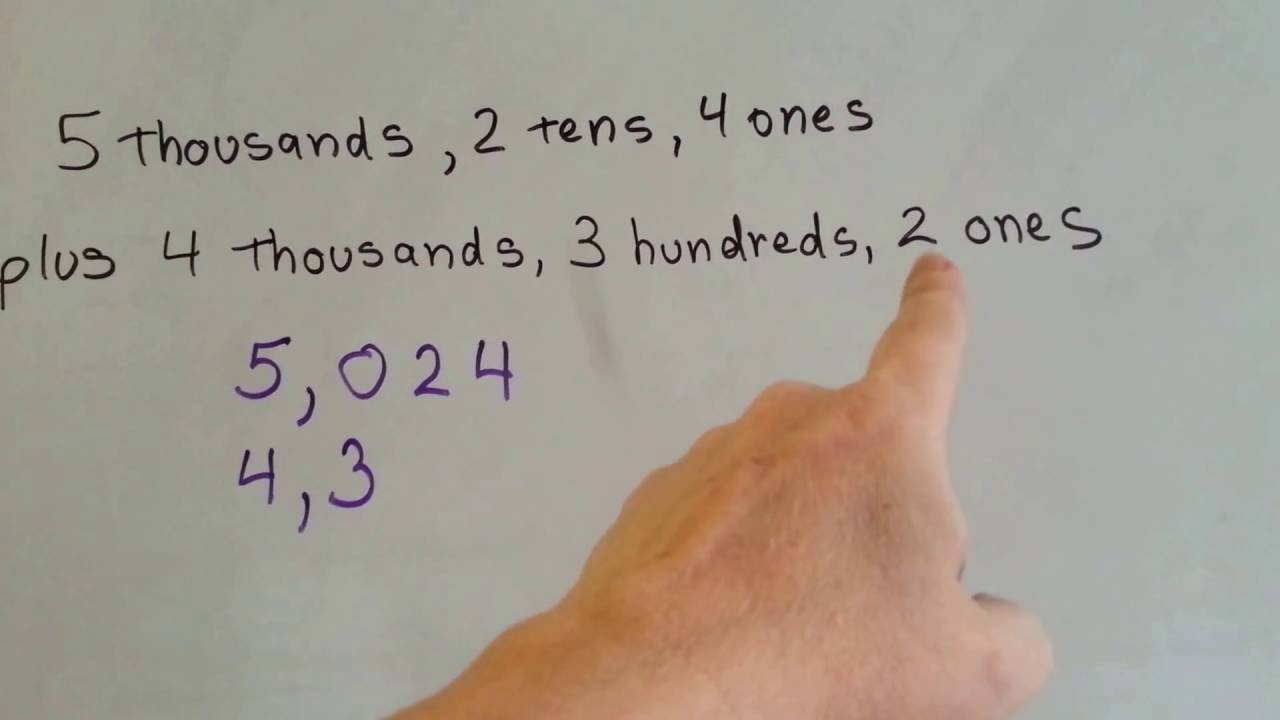 5 thousands, 2 tens, 4 ones
plus 4 thousands, 3 hundreds, 2 ones
5,024
4,3